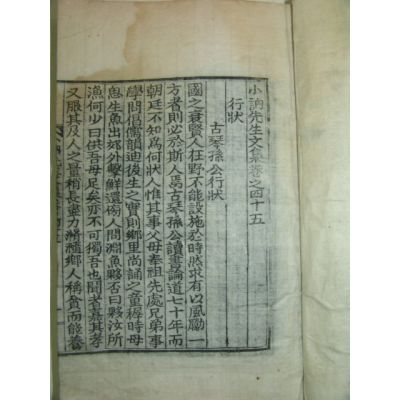 小訥先生文集卷之四十五
行狀
古琴孫公行狀
國之衰賢人在野不能設施於時然求有以風勵一
方者則必於斯人焉古琴孫公讀書論道七十年而
朝廷不知為何狀人惟其事父母奉祖先處兄弟事
學問倡儒韻迪後生之實則鄉里尚誦之童稺時母
患生魚出郊外擊鮮還傍人問淵魚夥否曰夥汝所
漁何少曰供吾母足矣亦不可獨吾也聞者嘉其孝
又服其及人之量稍長盡力滫瀡鄉人稱貧而能養